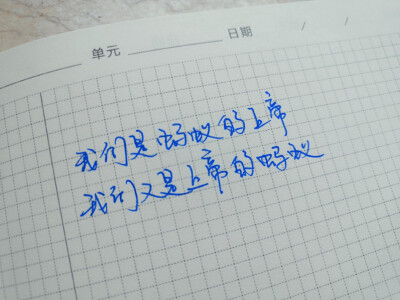 单元 日期 / /
我们是蚂蚁的上帝
我们又是上帝的蚂蚁